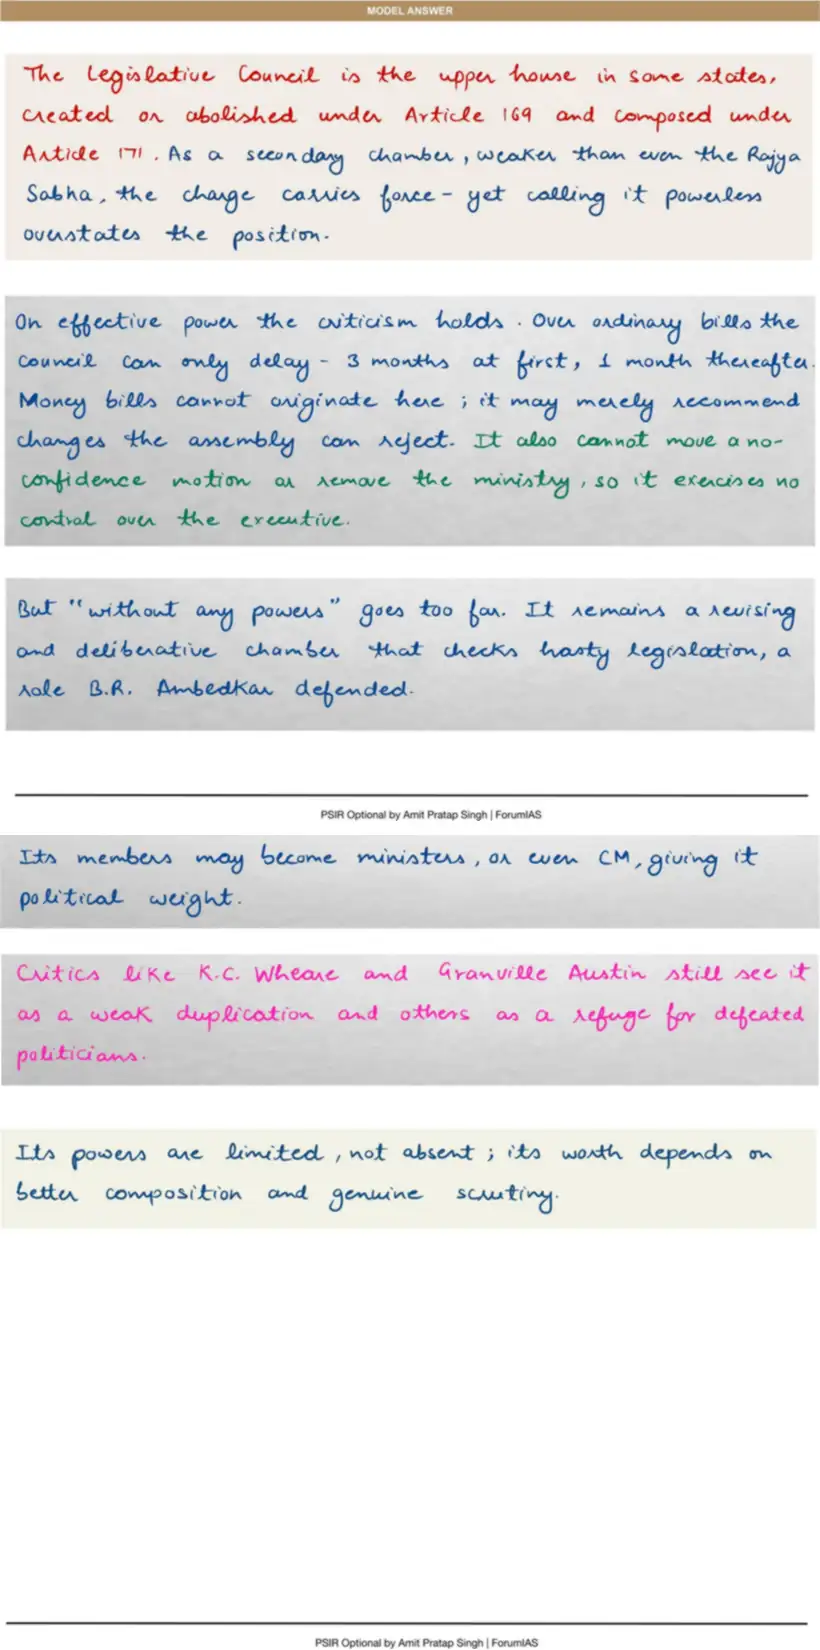 MODEL ANSWER
The Legislative Council is the upper house in some states,
created or abolished under Article 169 and composed under
Article 171. As a secondary chamber, weaker than even the Rajya
Sabha, the charge carries force - yet calling it powerless
overstates the position.
On effective power the criticism holds. Over ordinary bills the
council can only delay - 3 months at first, 1 month thereafter.
Money bills cannot originate here; it may merely recommend
changes the assembly can reject. It also cannot move a no-
confidence motion or remove the ministry, so it exercises no
control over the executive.
But "without any powers" goes too far. It remains a revising
and deliberative chamber that checks hasty legislation, a
role B.R. Ambedkar defended.
PSIR Optional by Amit Pratap Singh | ForumIAS
Its members may become ministers, or even CM, giving it
political weight.
Critics like K.C. Wheare and Granville Austin still see it
as a weak duplication and others as a refuge for defeated
politicians.
Its powers are limited, not absent; its worth depends on
better composition and genuine scrutiny.
PSIR Optional by Amit Pratap Singh | ForumIAS